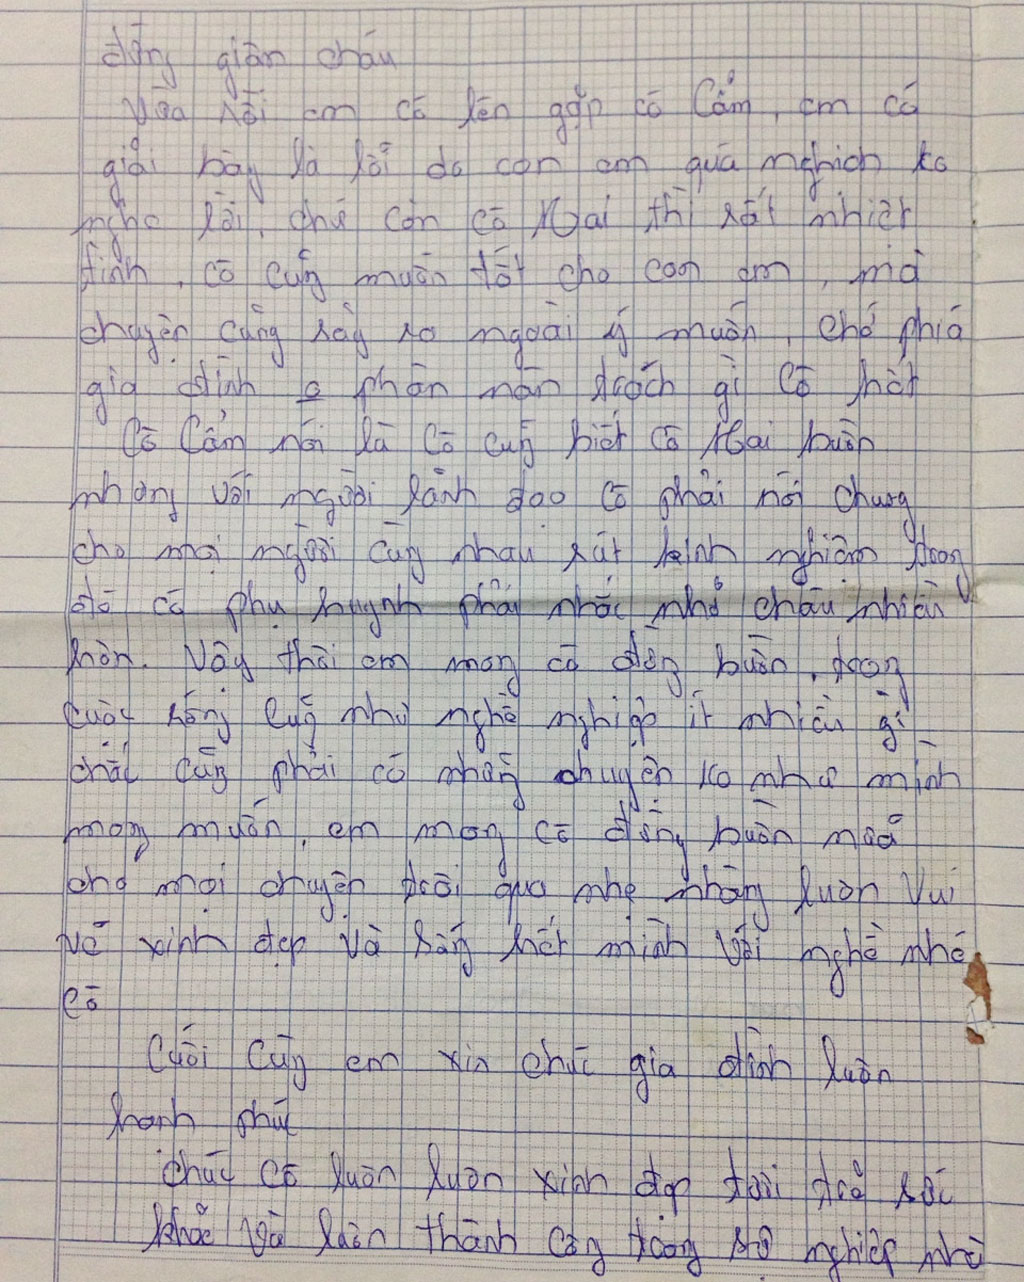 đừng giận cháu
Vừa rồi em có lên gặp cô Cẩm, em có
giải bày là lỗi do con em quá nghịch ko
nghe lời, chứ còn cô Mai thì rất nhiệt
tình, cô cũng muốn tốt cho con em, mà
chuyện cũng xảy ra ngoài ý muốn, chứ phía
gia đình phàn nàn trách gì cô hết
Cô Cẩm nói là cô cũng biết cô Mai buồn
nhưng với người lãnh đạo cô phải nói chung
cho mọi người cùng nhau rút kinh nghiệm trong
đó có phụ huynh phải nhắc nhở cháu nhiều
hơn. Vậy thôi em mong cô đừng buồn, trong
cuộc sống cũng như nghề nghiệp ít nhiều gì
chắc cũng phải có những chuyện ko như mình
mong muốn, em mong cô đừng buồn nữa
cho mọi chuyện trôi qua nhẹ nhàng luôn vui
vẻ xinh đẹp và sống hết mình với nghề nhé
cô
Cuối cùng em xin chúc gia đình luôn
hạnh phúc
chúc cô luôn luôn xinh đẹp tươi trẻ sức
khỏe và luôn thành công trong sự nghiệp nhé